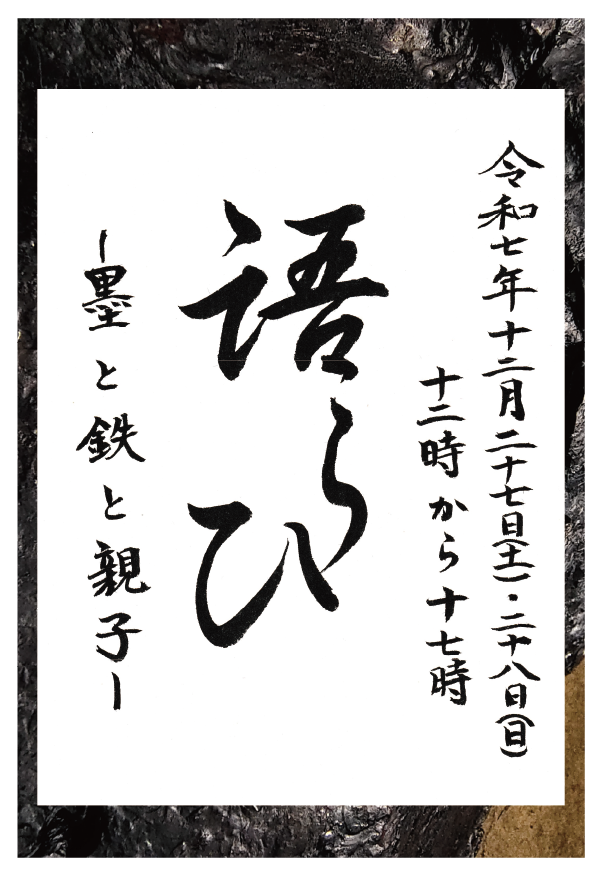 令和七年十二月二十七日(土)・二十八日(日)
十二時から十七時
語らひ
ー墨と鉄と親子ー